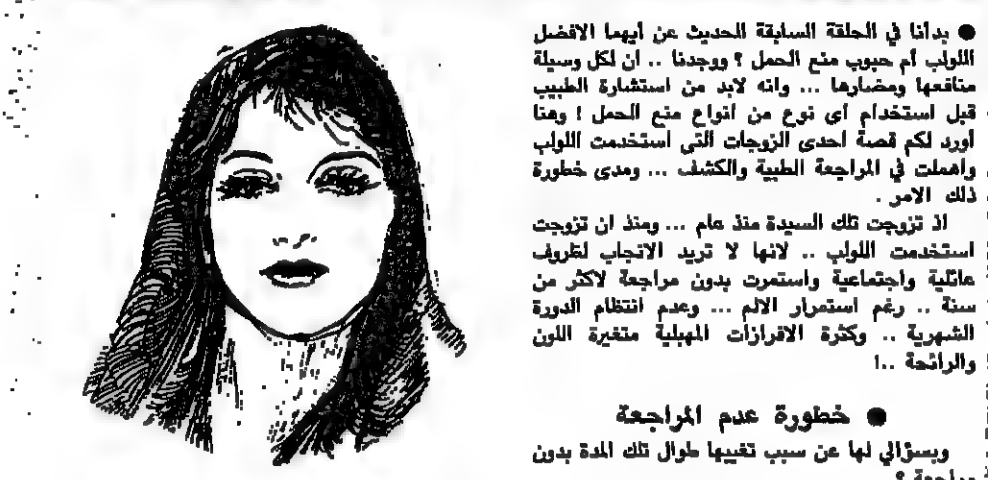 ● بدأنا في الحلقة السابقة الحديث عن أيهما الافضل
اللولب أم حبوب منع الحمل ؟ ووجدنا .. ان لكل وسيلة
منافعها ومضارها ... وانه لابد من استشارة الطبيب
قبل استخدام اى نوع من انواع منع الحمل ! وهنا
أورد لكم قصة احدى الزوجات التي استخدمت اللولب
واهملت في المراجعة الطبية والكشف ... ومدى خطورة
ذلك الامر .
اذ تزوجت تلك السيدة منذ عام ... ومنذ ان تزوجت
استخدمت اللولب .. لانها لا تريد الانجاب لظروف
عائلية واجتماعية واستمرت بدون مراجعة لاكثر من
سنة .. رغم استمرار الالم ... وعدم انتظام الدورة
الشهرية .. وكثرة الافرازات المهبلية متغيرة اللون
والرائحة ..!
● خطورة عدم المراجعة
وبسؤالي لها عن سبب تغيبها طوال تلك المدة بدون
مراجعة ؟